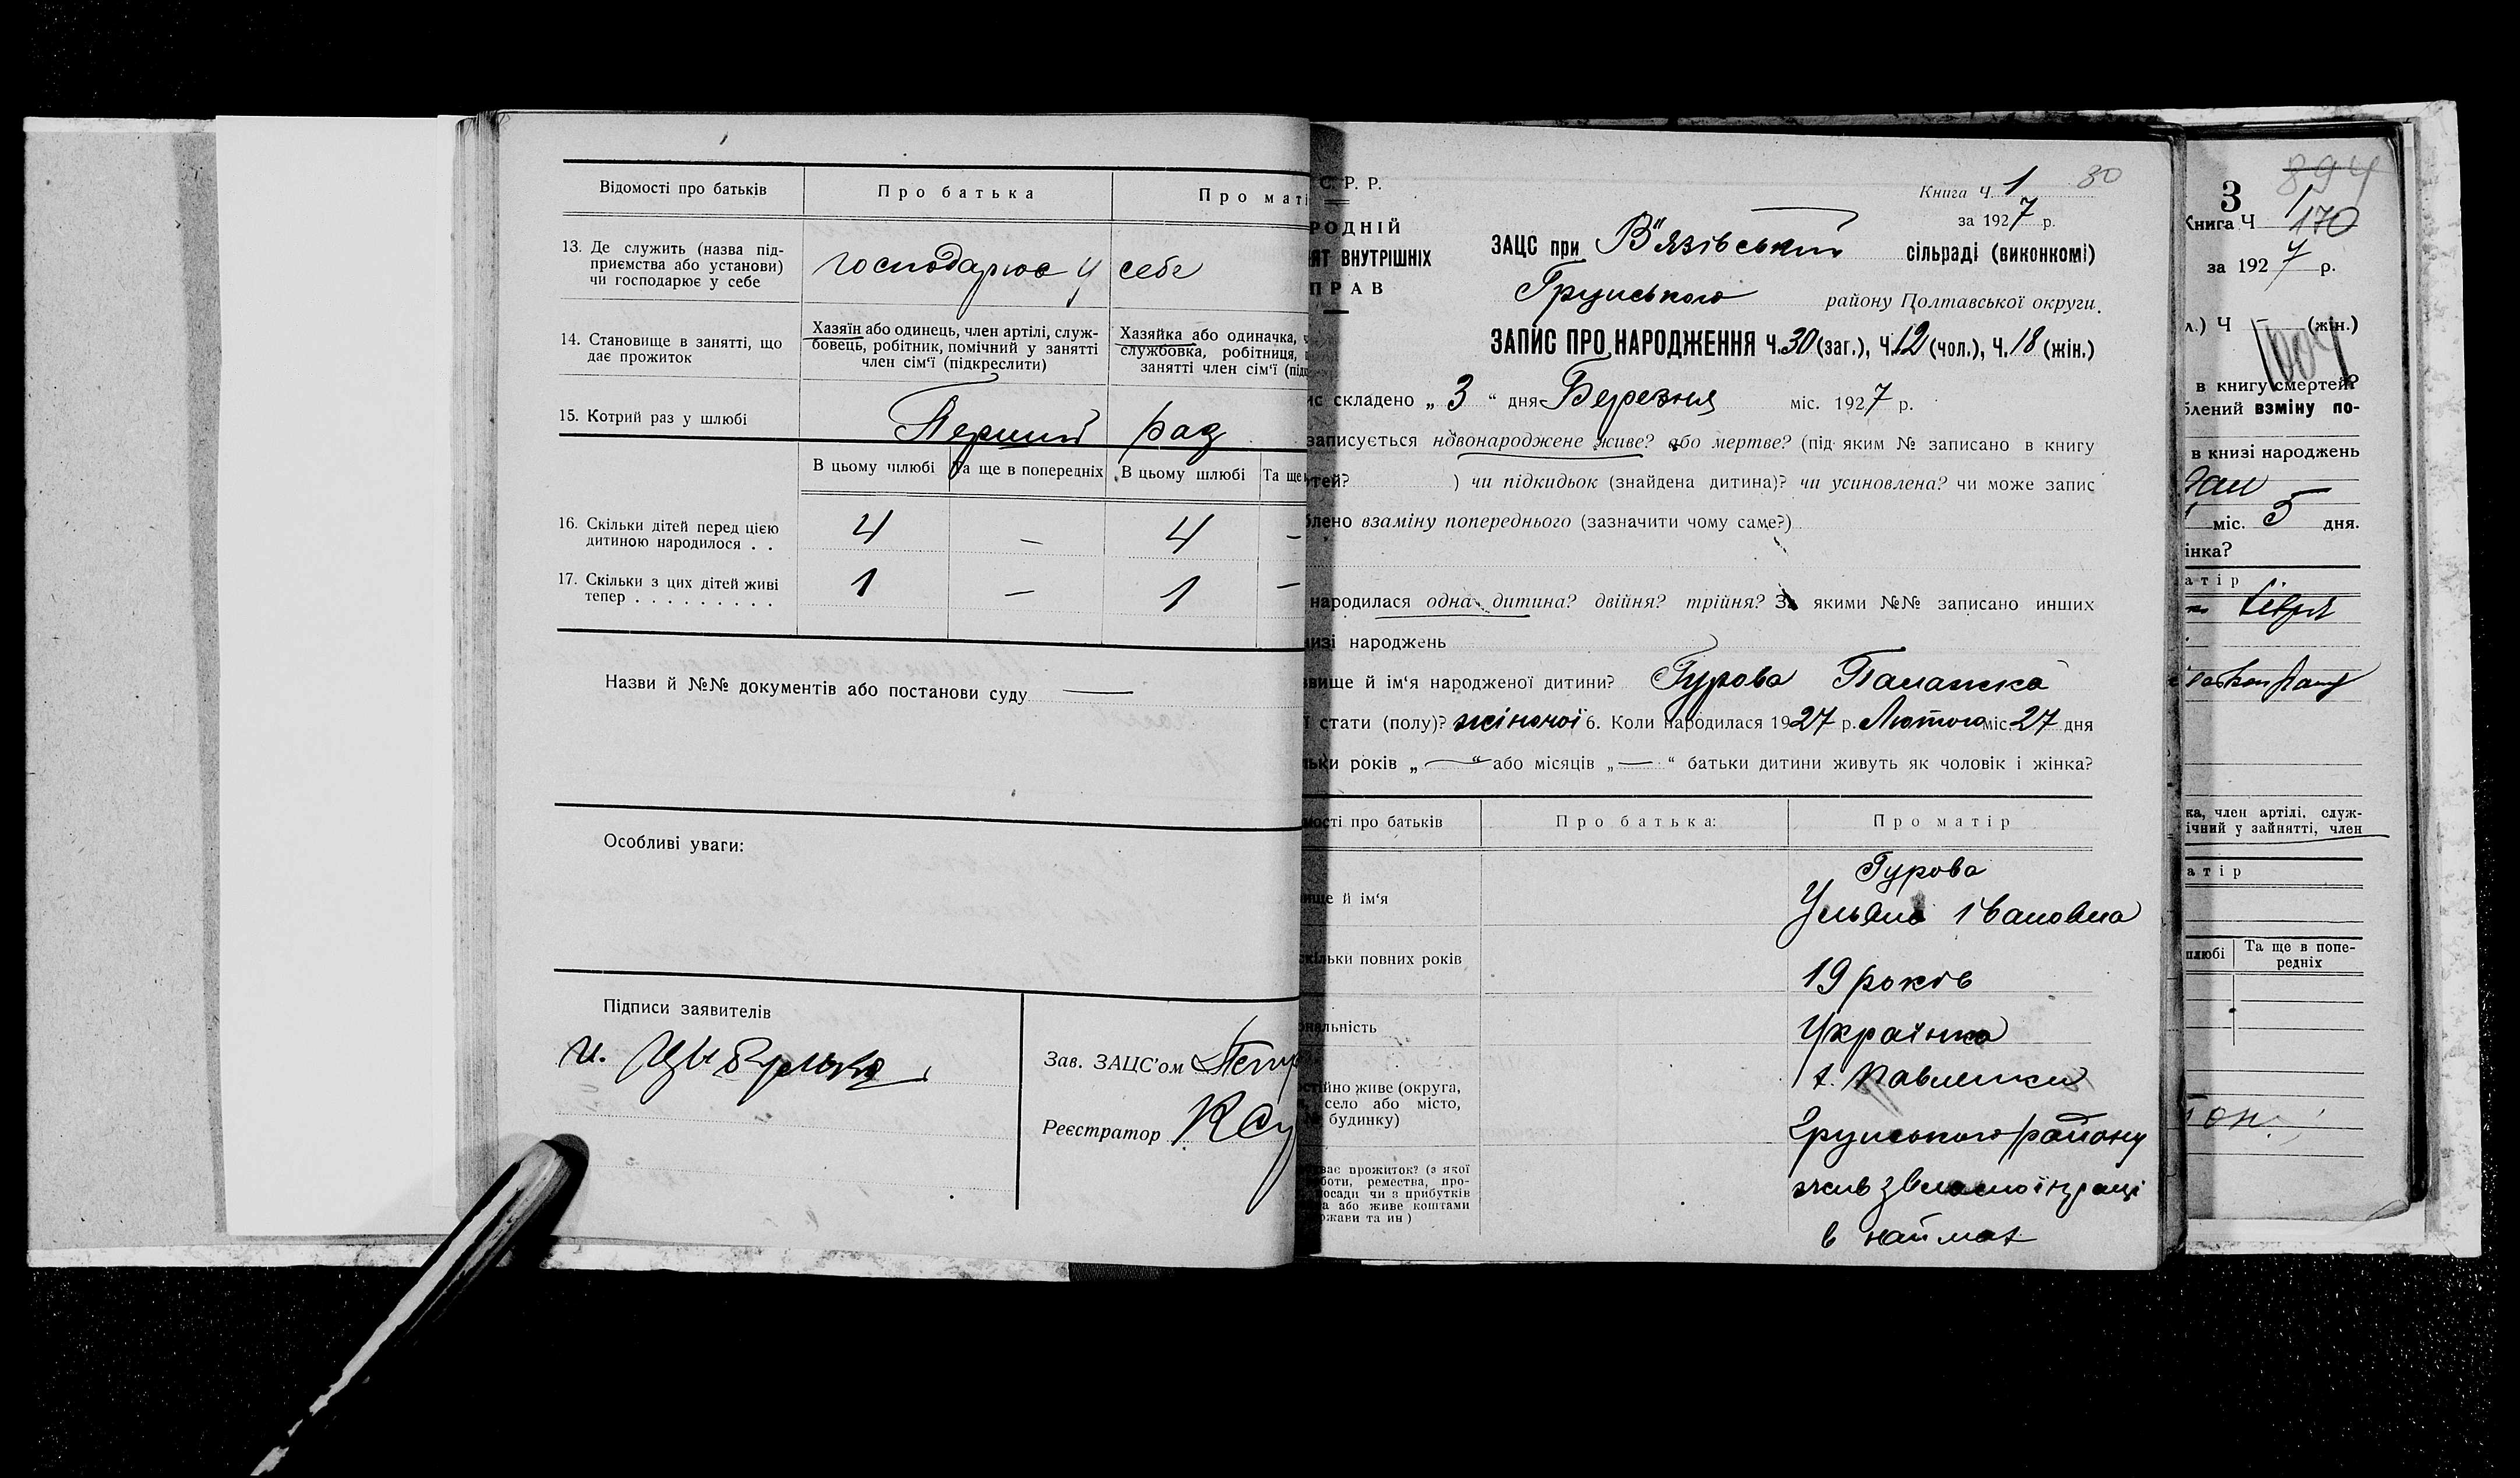 Відомості про батьків
Про батька
Про маті
13. Де служить (назва під-
приємства або установи)
чи господарює у себе
господарює у себе
14. Становище в занятті, що
дає прожиток
Хазяїн або одинець, член артілі, служ-
бовець, робітник, помічний у занятті
член сім'ї (підкреслити)
Хазяйка або одиначка, ч
службовка, робітниця,
занятті член сім'ї (під
15. Котрий раз у шлюбі
Перший раз
В цьому шлюбі
Та ще в попередніх
В цьому шлюбі
Та ще
16. Скільки дітей перед цією
дитиною народилося . .
4 — 4 —
17. Скільки з цих дітей живі
тепер . . . . . . . . .
1 — 1 —
Назви й №№ документів або постанови суду —
Особливі уваги:
Підписи заявителів
И. Цыбулька
Зав. ЗАЦС'ом
Реєстратор
С. Р. Р.
РОДНІЙ
ЯТ ВНУТРІШНІХ
ПРАВ
Книга Ч. 1
80
за 1927 р.
ЗАЦС при В'язівський сільраді (виконкомі)
Грунського району Полтавської округи.
ЗАПИС ПРО НАРОДЖЕННЯ Ч. 30 (заг.), Ч. 12 (чол.), Ч. 18 (жін.)
ис складено „ 3 “ дня Березня міс. 1927 р.
записується новонароджене живе? або мертве? (під яким № записано в книгу
тей? ) чи підкидьок (знайдена дитина)? чи усиновлена? чи може запис
блено взаміну попереднього (зазначити чому саме?)
народилася одна дитина? двійня? трійня? За якими №№ записано инших
низі народжень
звище й ім'я народженої дитини? Гурова Палажка
ї стати (полу)? жіночої 6. Коли народилася 1927 р. Лютого міс. 27 дня
льки років „ — “ або місяців „ — “ батьки дитини живуть як чоловік і жінка?
мості про батьків
Про батька:
Про матір
вище й ім'я
Гурова
Ульяна Івановна
скільки повних років
19 років
ональність
Українка
стійно живе (округа,
село або місто,
будинку)
х. Павленки
Грунського району
ває прожиток? (з якої
боти, ремества, про-
осади чи з прибутків
а або живе коштами
ржави та ин)
жив з власної праці
в наймах
894
3
Книга Ч 1
170
за 1927 р.
л.) Ч — (жін.)
в книгу смертей?
блений взміну по-
в книзі народжень
міс. 5 дня.
інка?
атір
ка, член артілі, служ-
ічний у зайнятті, член
атір
шлюбі
Та ще в попе-
редніх